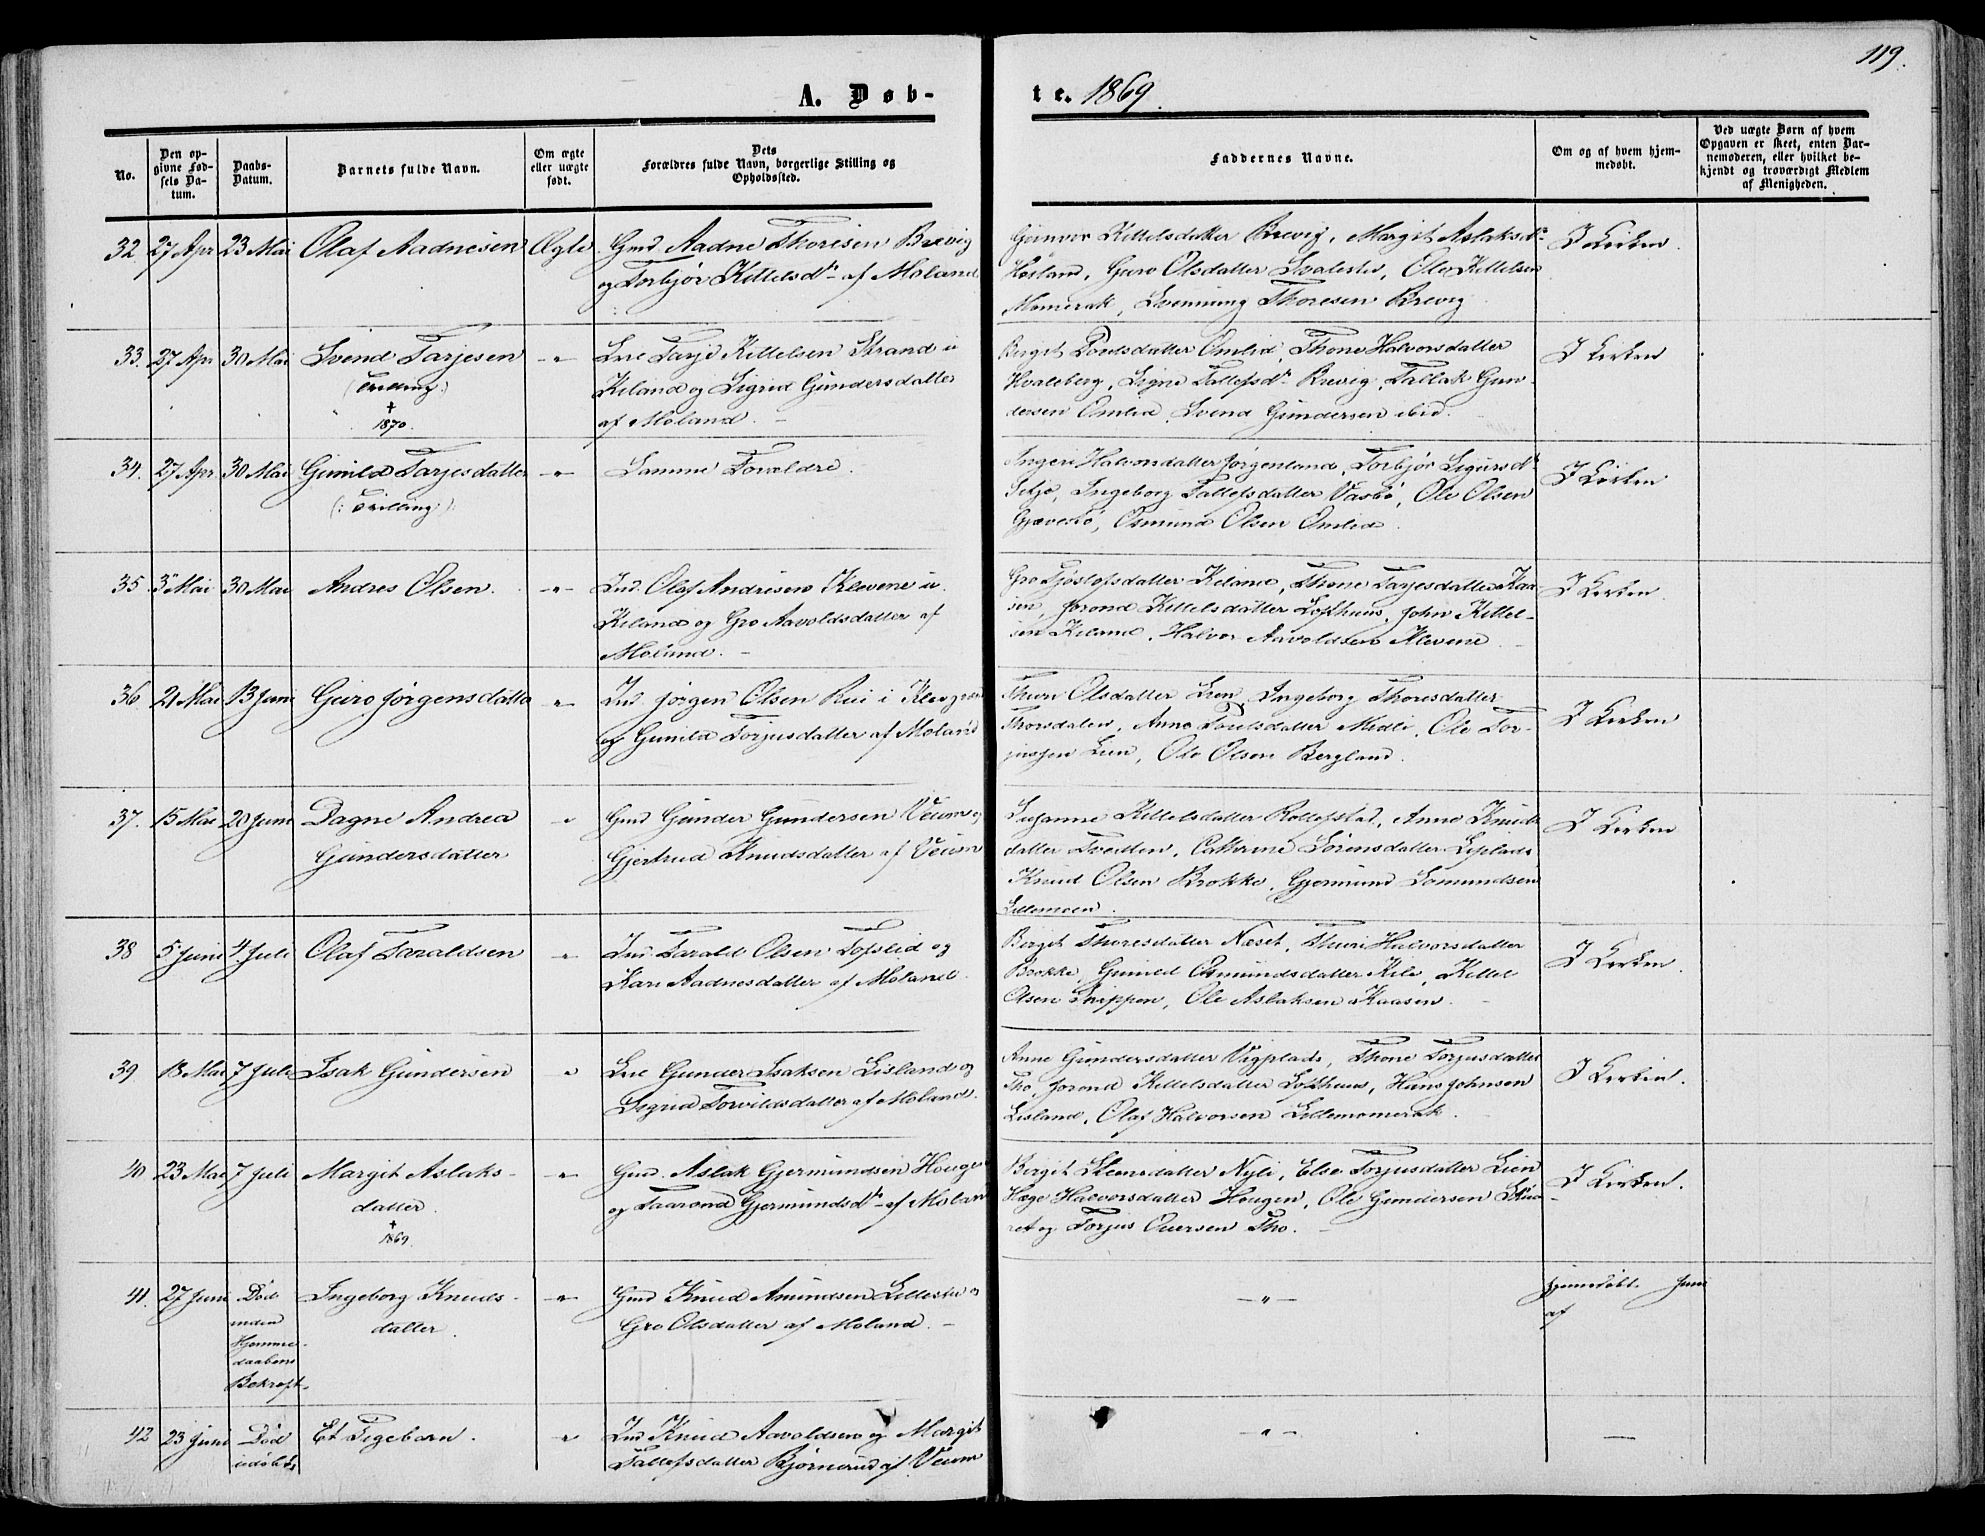 119.
A. Døb-
te. 1869.
No.
Den op-
givne Fød-
sels Da-
tum.
Daabs-
Datum.
Barnets fulde Navn.
Om ægte
eller uægte
født.
Dets
Forældres fulde Navn, borgerlige Stilling og
Opholdssted.
Faddernes Navne.
Om og af hvem hjem-
medøbt.
Ved uægte Børn af hvem
Opgaven er skeet, enten Bar-
nemoderen, eller hvilket be-
kjendt og troværdigt Medlem
af Menigheden.
32 27 Apr 23 Mai Olaf Aadnesen Ægte Gmd. Aadne Thoresen Brevig
og Torbjør Kittelsdr. af Moland
Gunvor Kittelsdatter Brevig, Margit Aslaksdr.
Guro Olsdatter Ole Kittelsen
Momrak, Svenning Thoresen Brevig
I Kirken.
33. 27 Apr 30 Mai Svend Tarjesen
(Tvilling:)
†
1870.
-"- Tarje Kittelsen Strand i
Kiland og Sigrid Gundersdatter
af Moland. -
Birgit Omlid, Thone Halvorsdatter
Hvaleberg, Signe Tallefsdr. Brevig, Tallak Gun-
dersen Omlid, Svend Gundersen ibid.
I Kirken
34. 27 Apr 30 Mai Gunild Tarjesdatter
(: Tvilling:)
-"- Samme Forældre.
Ingeri Halvorsdatter Jørgenland, Torbjør Sigursdr.
Ingeborg Tallefsdatter Vasbø, Ole Olsen
Osmund Olsen Omlid.
I Kirken
35 3 Mai 30 Mai Andres Olsen.
-"- Ind. Olaf Andresen Klevene i
Kiland og Gro Aavoldsdatter af
Moland. -
Gro Kiland, Thone Tarjesdatter Kaa-
sen, Jorond Kittelsdatter Lofthuus, John Kittel-
sen Kiland, Halvor Aavoldsen Klevene -
I Kirken
36 21 Mai 13 Juni Guro Jørgensdatter
" Ind Jørgen Olsen Rui i
og Gunild Torjusdatter af Moland
Olsdatter Lien, Ingeborg Thoresdatter
Thorsdalen, Anne Midli, Ole Tor-
jusen Lien, Ole Olsen Bergland.
I Kirken
37. 15 Mai 20 Juni Dagne Andrea
Gundersdatter
" Gmd Gunder Gundersen Veum og
Gjertrud Knudsdatter af Veum
Susanne Kittelsdatter Rollefstad, Anne Knuds-
datter Tvedten, Cathrine Sørensdatter
Knud Olsen Brokke, Gjermund
Lillemoen.
I Kirken
38 5 Juni 4 Juli Olaf Taraldsen
" Ind Tarald Olsen Tofslid og
Kari Aadnesdatter af Moland.
Birgit Thoresdatter Næset, Thuri Halvorsdatter
Brokke, Gunild Osmundsdatter Kile, Kittel
Olsen Ole Aslaksen Kaasen. -
I Kirken.
39 13 Mai 7 Juli Isak Gundersen
" Gunder Isaksen Lisland og
Sigrid Torvildsdatter af Moland.
Anne Gundersdatter Vigplads, Thone Torjusdatter
Tho, Jorond Kittelsdatter Lofthuus, Hans Johnsen
Lisland, Olaf Halvorsen Lillemomrak.
I Kirken.
40 23 Mai 7 Juli Margit Aslaks-
datter.
†
1869.
" Gmd. Aslak Gjermundsen Hougen
og Taarond Gjermundsdr. af Moland
Birgit Steensdatter Nyli, Else Torjusdatter Lien
Hæge Halvorsdatter Hougen, Ole Gundersen
og Torjus Tho. -
I Kirken.
41. 27 Juni Død
inden
Hjemme-
daabens
Bekræft.
Ingeborg Knuds-
datter.
-"- Gmd Knud Amundsen Lillestø og
Gro Olsdatter af Moland. -
-"-
hjemmedøbt Juni
af
42 23 Juni Død
udøbt
Et Pigebarn.
" Ind Knud Aavoldsen og Margit
Tallefsdatter Bjørnerud af Veum
-"-
—